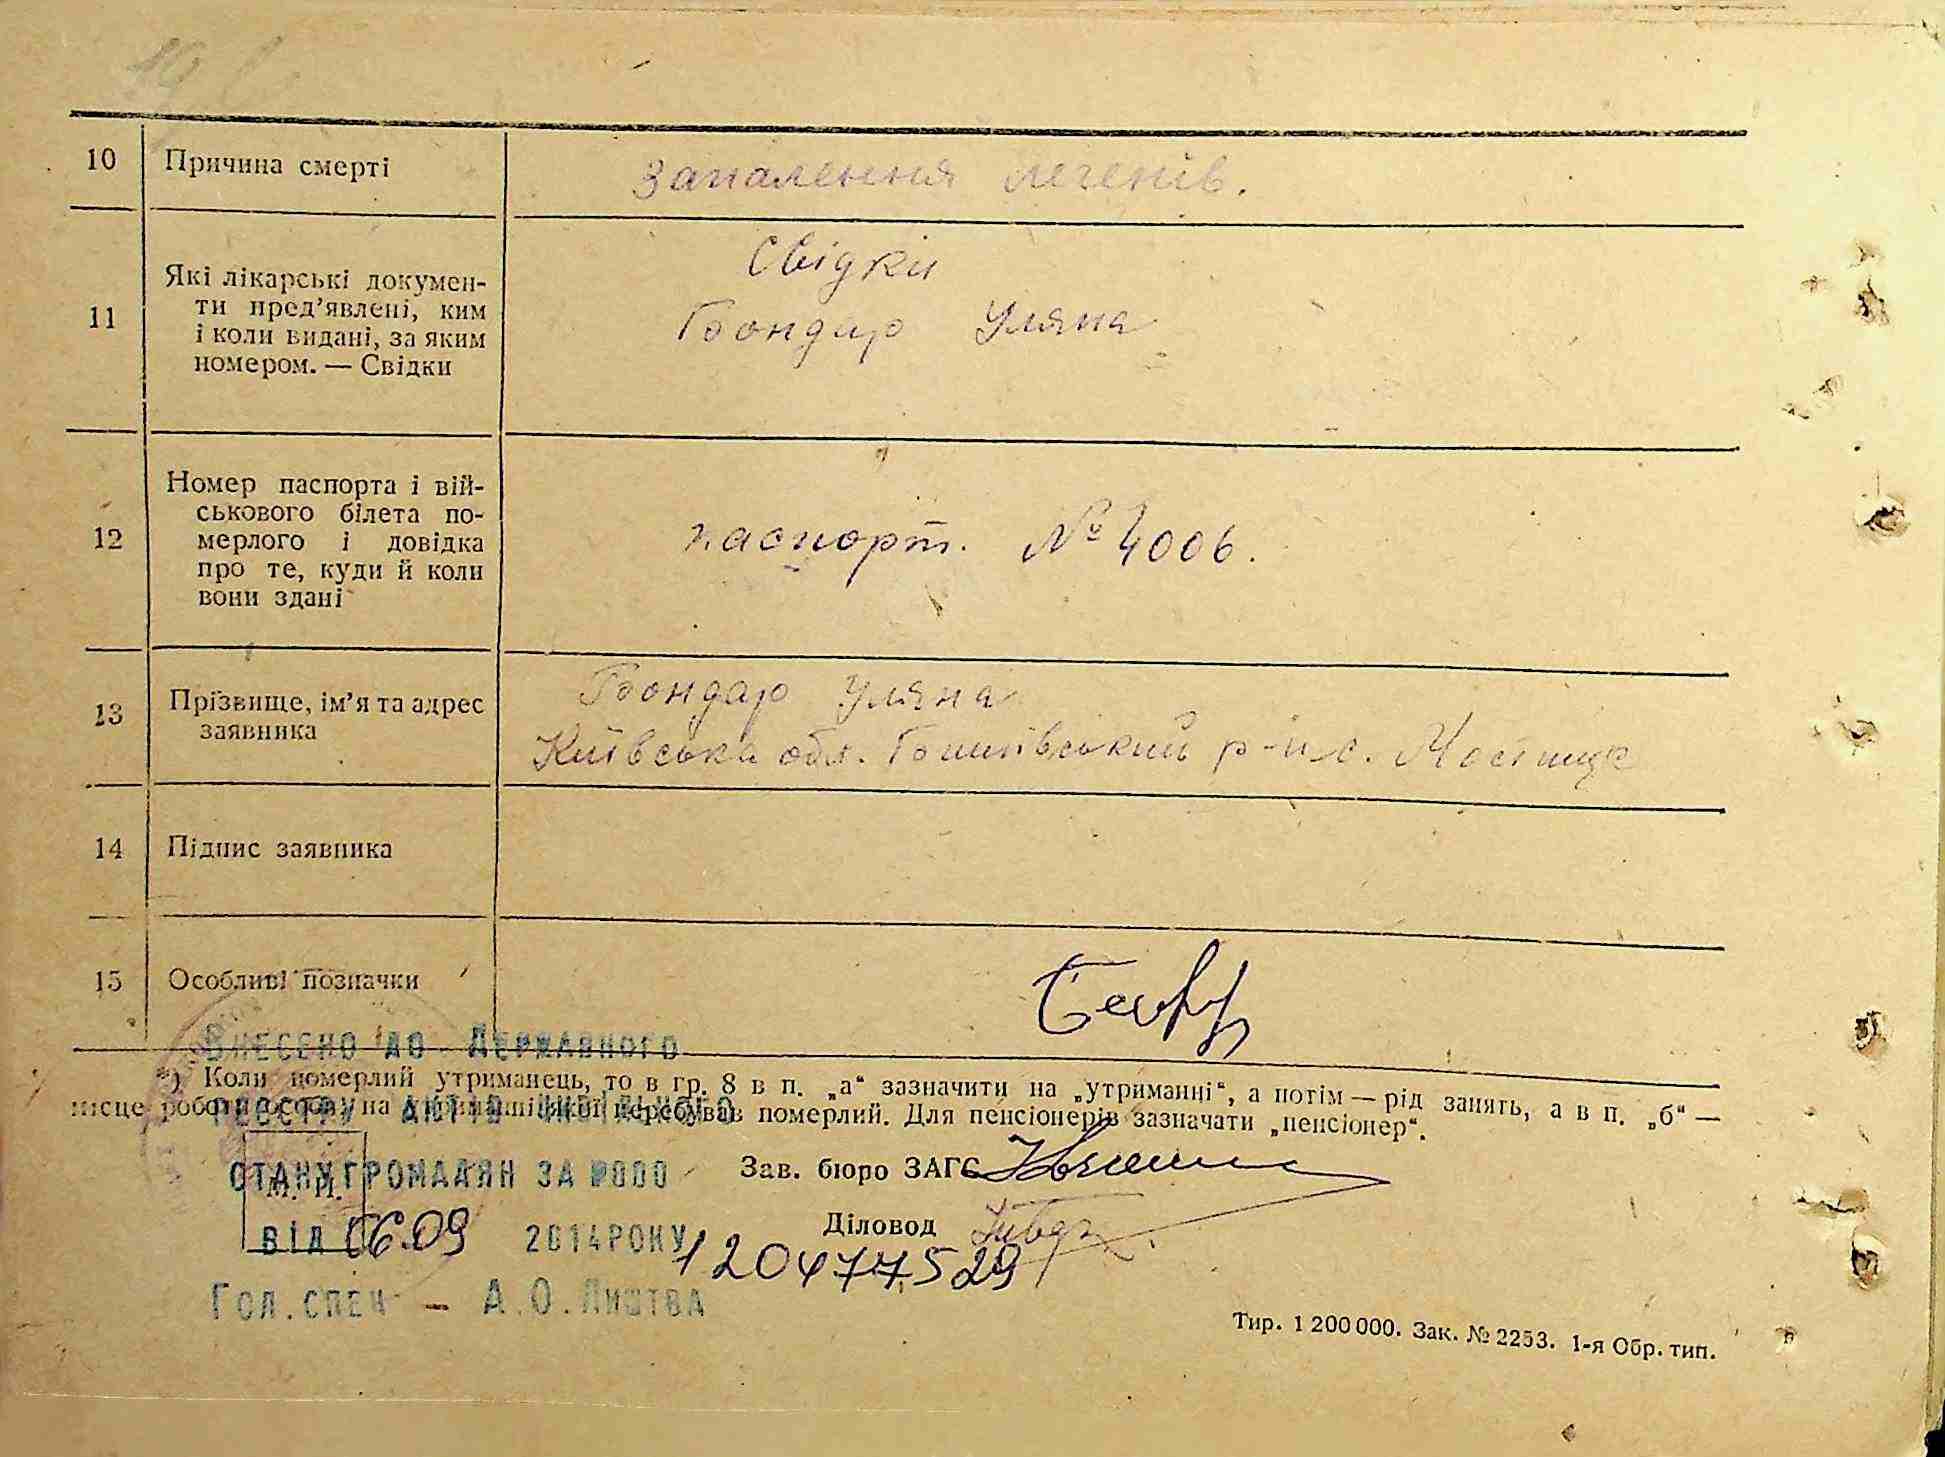 10 Причина смерті Запалення легенів.
Свідки
Які лікарські докумен-
ти пред'явлені, ким
11 і коли видані, за яким Бондар Уляна
номером. — Свідки
Номер паспорта і вій-
ськового білета по-
12 мерлого і довідка паспорт. № 4006.
про те, куди й коли
вони здані
Бондар Уляна
13 Прізвище, ім'я та адрес
заявника Київська обл. р-н с.
14 Підпис заявника
15 Особливі позначки
Внесено до Державного
*) Коли померлий утриманець, то в гр. 8 в п. „а“ зазначити на „утриманні“, а потім — рід занять, а в п. „б“ —
місце роботи особи, на утриманні якої перебував померлий. Для пенсіонерів зазначати „пенсіонер“.
реєстру актів цивільного
стану громадян за №000
М. П.
Зав. бюро ЗАГС
від 06.09 2014 року
Діловод
1204777529
Гол. спец - А.О. Лиштва
Тир. 1 200 000. Зак. № 2253. 1-я Обр. тип.